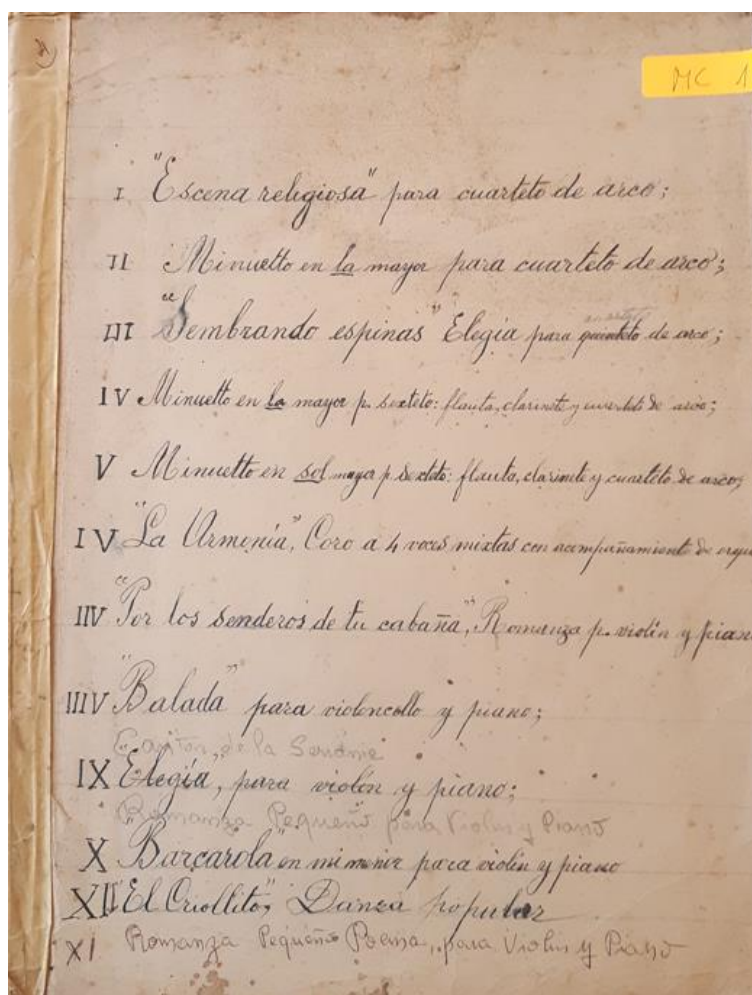 MC 1
I "Escena religiosa" para cuarteto de arco;
II Minuetto en la mayor para cuarteto de arco;
III "Sembrando espinas" Elegia para quinteto de arco;
IV Minuetto en la mayor p. sexteto: flauta, clarinete y cuarteto de arco;
V Minuetto en sol mayor p. sexteto: flauta, clarinete y cuarteto de arco;
IV "La Armonía", Coro a 4 voces mixtas con acompañamiento de
IIV "Por los senderos de tu cabaña", Romanza p. violín y piano
IIIV "Balada" para violoncello y piano;
de la
IX "Elegía", para violín y piano;
Romanza Pequeño para Violin y Piano
X "Barcarola" en mi menor para violín y piano
XII "El Criollito", Danza popular
XI Romanza Pequeño Poema, para Violin y Piano